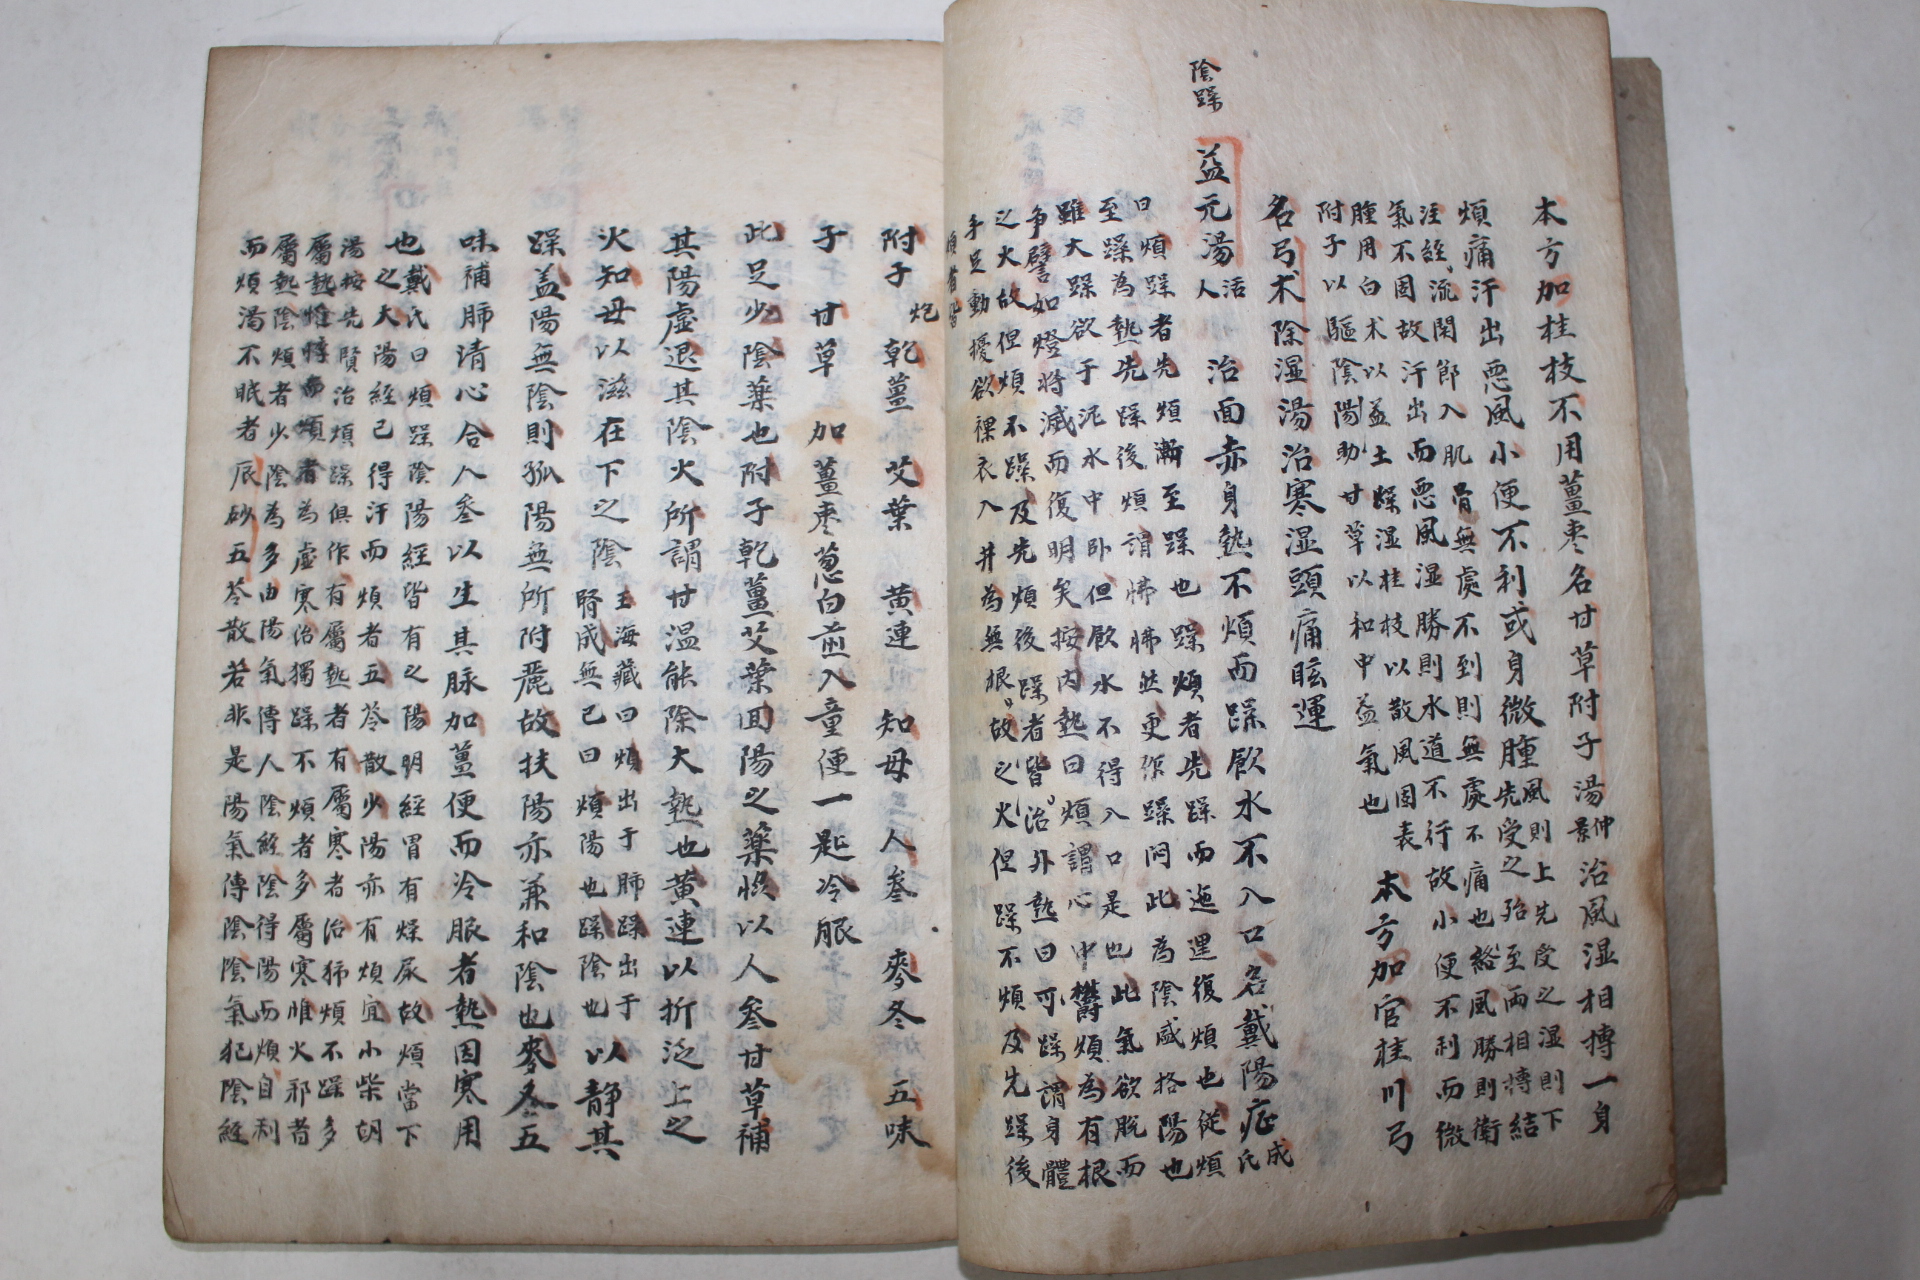 本方加桂枝不用薑棗名甘草附子湯仲景治風湿相摶一身
煩痛汗出悪風小便不利或身微腫風則上先受之湿則下
先受之殆至兩相摶結
注經流関節入肌骨無處不到則無處不痛也絡風勝則衛
氣不固故汗出而悪風湿勝則水道不行故小便不利而微
腫用白朮以益土燥湿桂枝以散風固表
附子以驅陰陽助甘草以和中益氣也
本方加官桂川弓
名弓朮除湿湯治寒湿頭痛眩運
陰躁
益元湯活人
治面赤身熱不煩而躁飲水不入口名戴陽症成氏
曰煩躁者先煩漸至躁也躁煩者先躁而迤邐復煩也從煩
至躁為熱先躁後煩謂怫怫然更作躁悶此為陰盛格陽也
雖大躁欲于泥水中卧但飲水不得入口是也此氣欲脱而
争譬如燈将滅而復明矣按内熱曰煩謂心中欝煩為有根
之火故但煩不躁及先煩後躁者皆治外熱曰可躁謂身體
手足動擾欲裸衣入井為無根故之火但躁不煩及先躁後
煩者皆
附子炮
乾薑
艾葉
黄連
知母
人参
麥冬
五味
子
甘草
加薑棗葱白煎入童便一匙冷服
此足少陰藥也附子乾薑艾葉回陽之藥以人参甘草補
其陽虚退其陰火所謂甘温能除大熱也黄連以折泛上之
火知母以滋在下之陰王海藏曰煩出于肺躁出于
腎成無己曰煩陽也躁陰也
以静其
躁盖陽無陰則孤陽無所附麗故扶陽亦兼和陰也麥冬五
味補肺清心合人参以生其脉加薑便而冷服者熱因寒用
也
戴氏曰煩躁陰陽經皆有之陽明經胃有燥尿故煩當下
之大陽經已得汗而煩者五苓散少陽亦有煩宜小柴胡
湯按先賢治煩躁俱作有屬熱者有屬寒者治獨煩不躁多
屬熱惟悸而煩者為虚寒治獨躁不煩者多屬寒惟火邪者
屬熱陰煩者少陰為多由陽氣傳人陰經陰得陽而煩自利
而煩渴不眠者辰砂五苓散若非是陽氣傳陰陰氣犯陰經